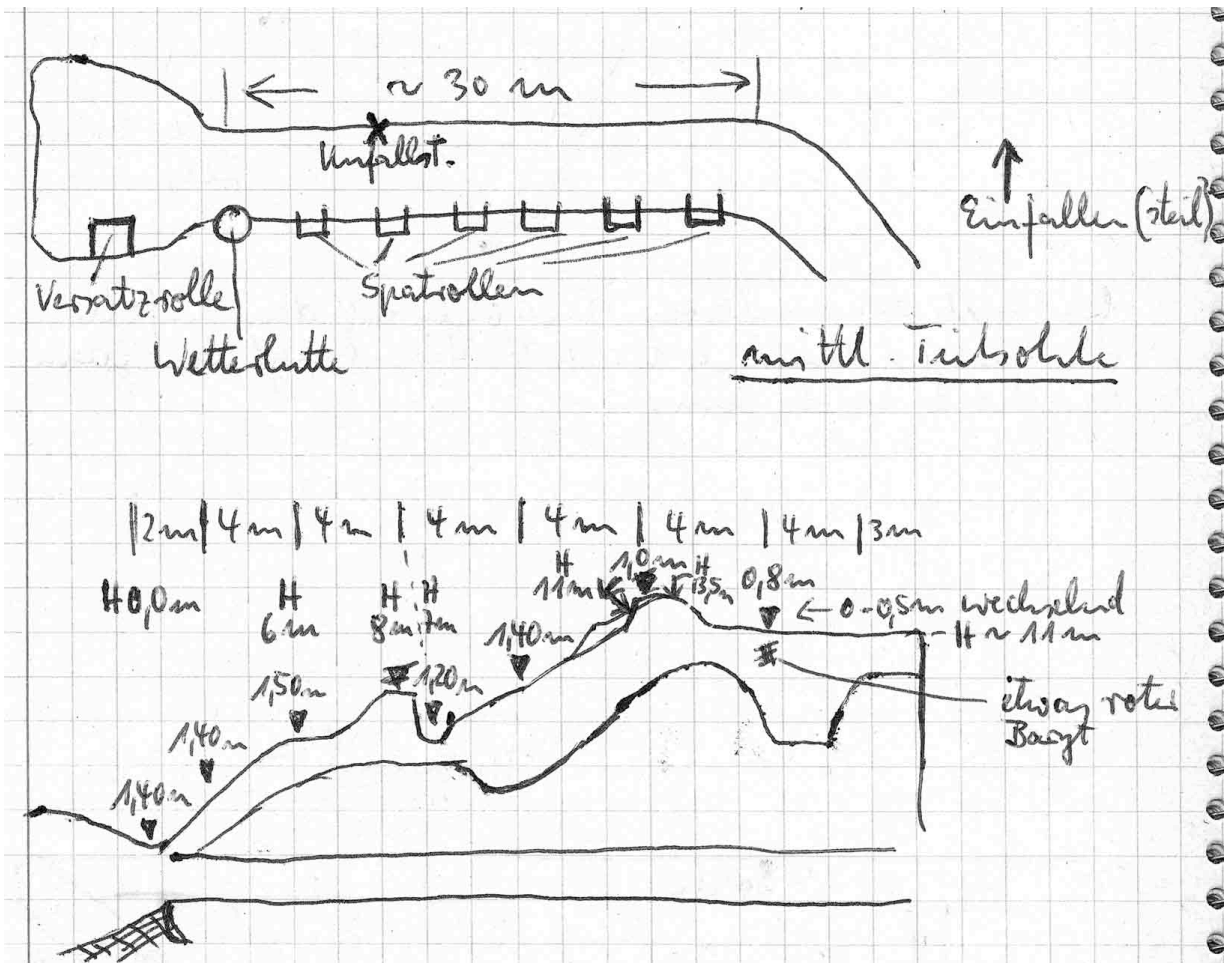 ~ 30 m
Unfallst.
Einfallen (steil)
Versatzrolle
Spatrollen
Wetterlutte
mittl. Teilsohle
|2m|4m|4m|4m|4m|4m|4m|3m
H 0,0m
H 6m
H 8m
H 7m
H 11m
1,0m
H 13,5m
0,8m
← 0-0,5m wechselnd
H ~ 11m
1,40m
1,20m
1,50m
1,40m
1,40m
etwas roter
Baryt